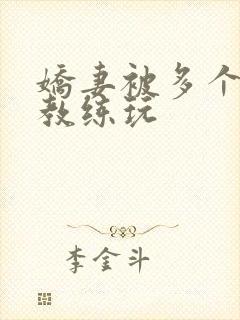 娇妻被多个
教练玩
李金斗